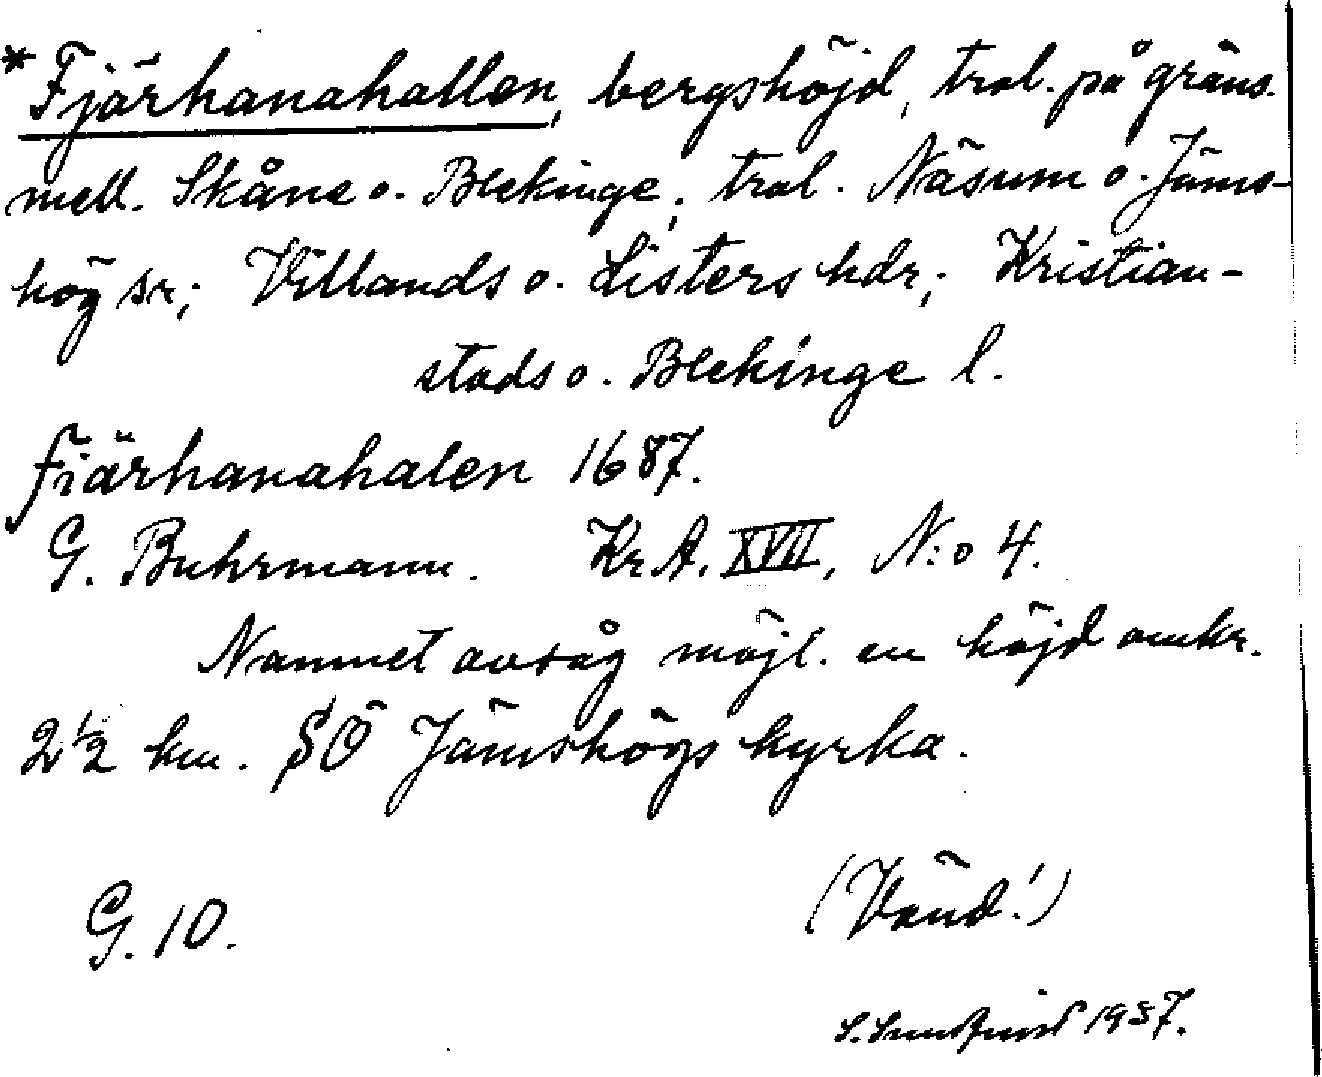 * Fjärhanahallen, bergshöjd, trol. på gräns.
mell. Skåne o. Blekinge; trol. Näsum o. Jäms-
hög sr; Villands o. Listers hdr; Kristian-
stads o. Blekinge l.
fiärhanahalen 1687.
G. Buhrmann. Kr. A. XVII, N:o 4.
Namnet avsåg möjl. en höjd omkr.
2 1/2 km. SÖ Jämshögs kyrka.
G. 10.
(Vänd!)
S. 1937.